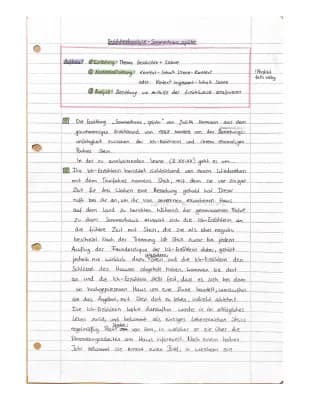 Erzählanalyse - Sommerhaus, später
Aufbau: 1 Einleitung: Thema, Geschichte + Szene
Kontext - Inhalt Szene - Kontext
oder: Kontext insgesamt - Inhalt Szene
3 Analyse: Beziehung
1 Die Erzählung „Sommerhaus, später" von Judith Hermann aus dem
gleichnamigen Erzählband von handelt von der Beziehungs-
unfähigkeit zwischen der Ich-Erzählerin und ihrem ehemaligen
Partner Stein.
In der zu analysierenden Szene (Z.XX-XX) geht es um...
2 Die Ich-Erzählerin berichtet rückblickend von einem Wiedersehen
mit dem Taxifahrer namens Stein, mit dem sie vor einiger
Zeit für drei Wochen eine Beziehung gehabt hat. Dieser
ruft bei ihr an, um ihr von seinem, erworbenen Haus
auf dem Land zu berichten. Während der gemeinsamen Fahrt
zu dem Sommerhaus erinnert sich die Ich-Erzählerin an
die frühere Zeit mit Stein, die sie als eher negativ
beschreibt. Nach der Trennung ist Stein zwar bei jedem
Ausflug der Freundesclique der Ich-Erzählerin dabei, gehört
jedoch nie wirklich dazu. Stein und die Ich-Erzählerin den
Schlüssel des Hauses abgeholt haben, kommen sie dort
an und die Ich-Erzählerin stellt fest, dass es sich bei dem
um eine Ruine handelt, woraufhin
sie das Angebot, mit Stein dort zu leben, indirekt ablehnt.
Die Ich-Erzählerin kehrt daraufhin wieder in ihr alltägliches
Leben zurück und bekommt als einziges Lebenszeichen Steins
regelmäßig Post von ihm, in welcher er sie über die
am Haus informiert. Nach einem halben
Jahr bekommt sie erneut einen Brief, in welchem ein